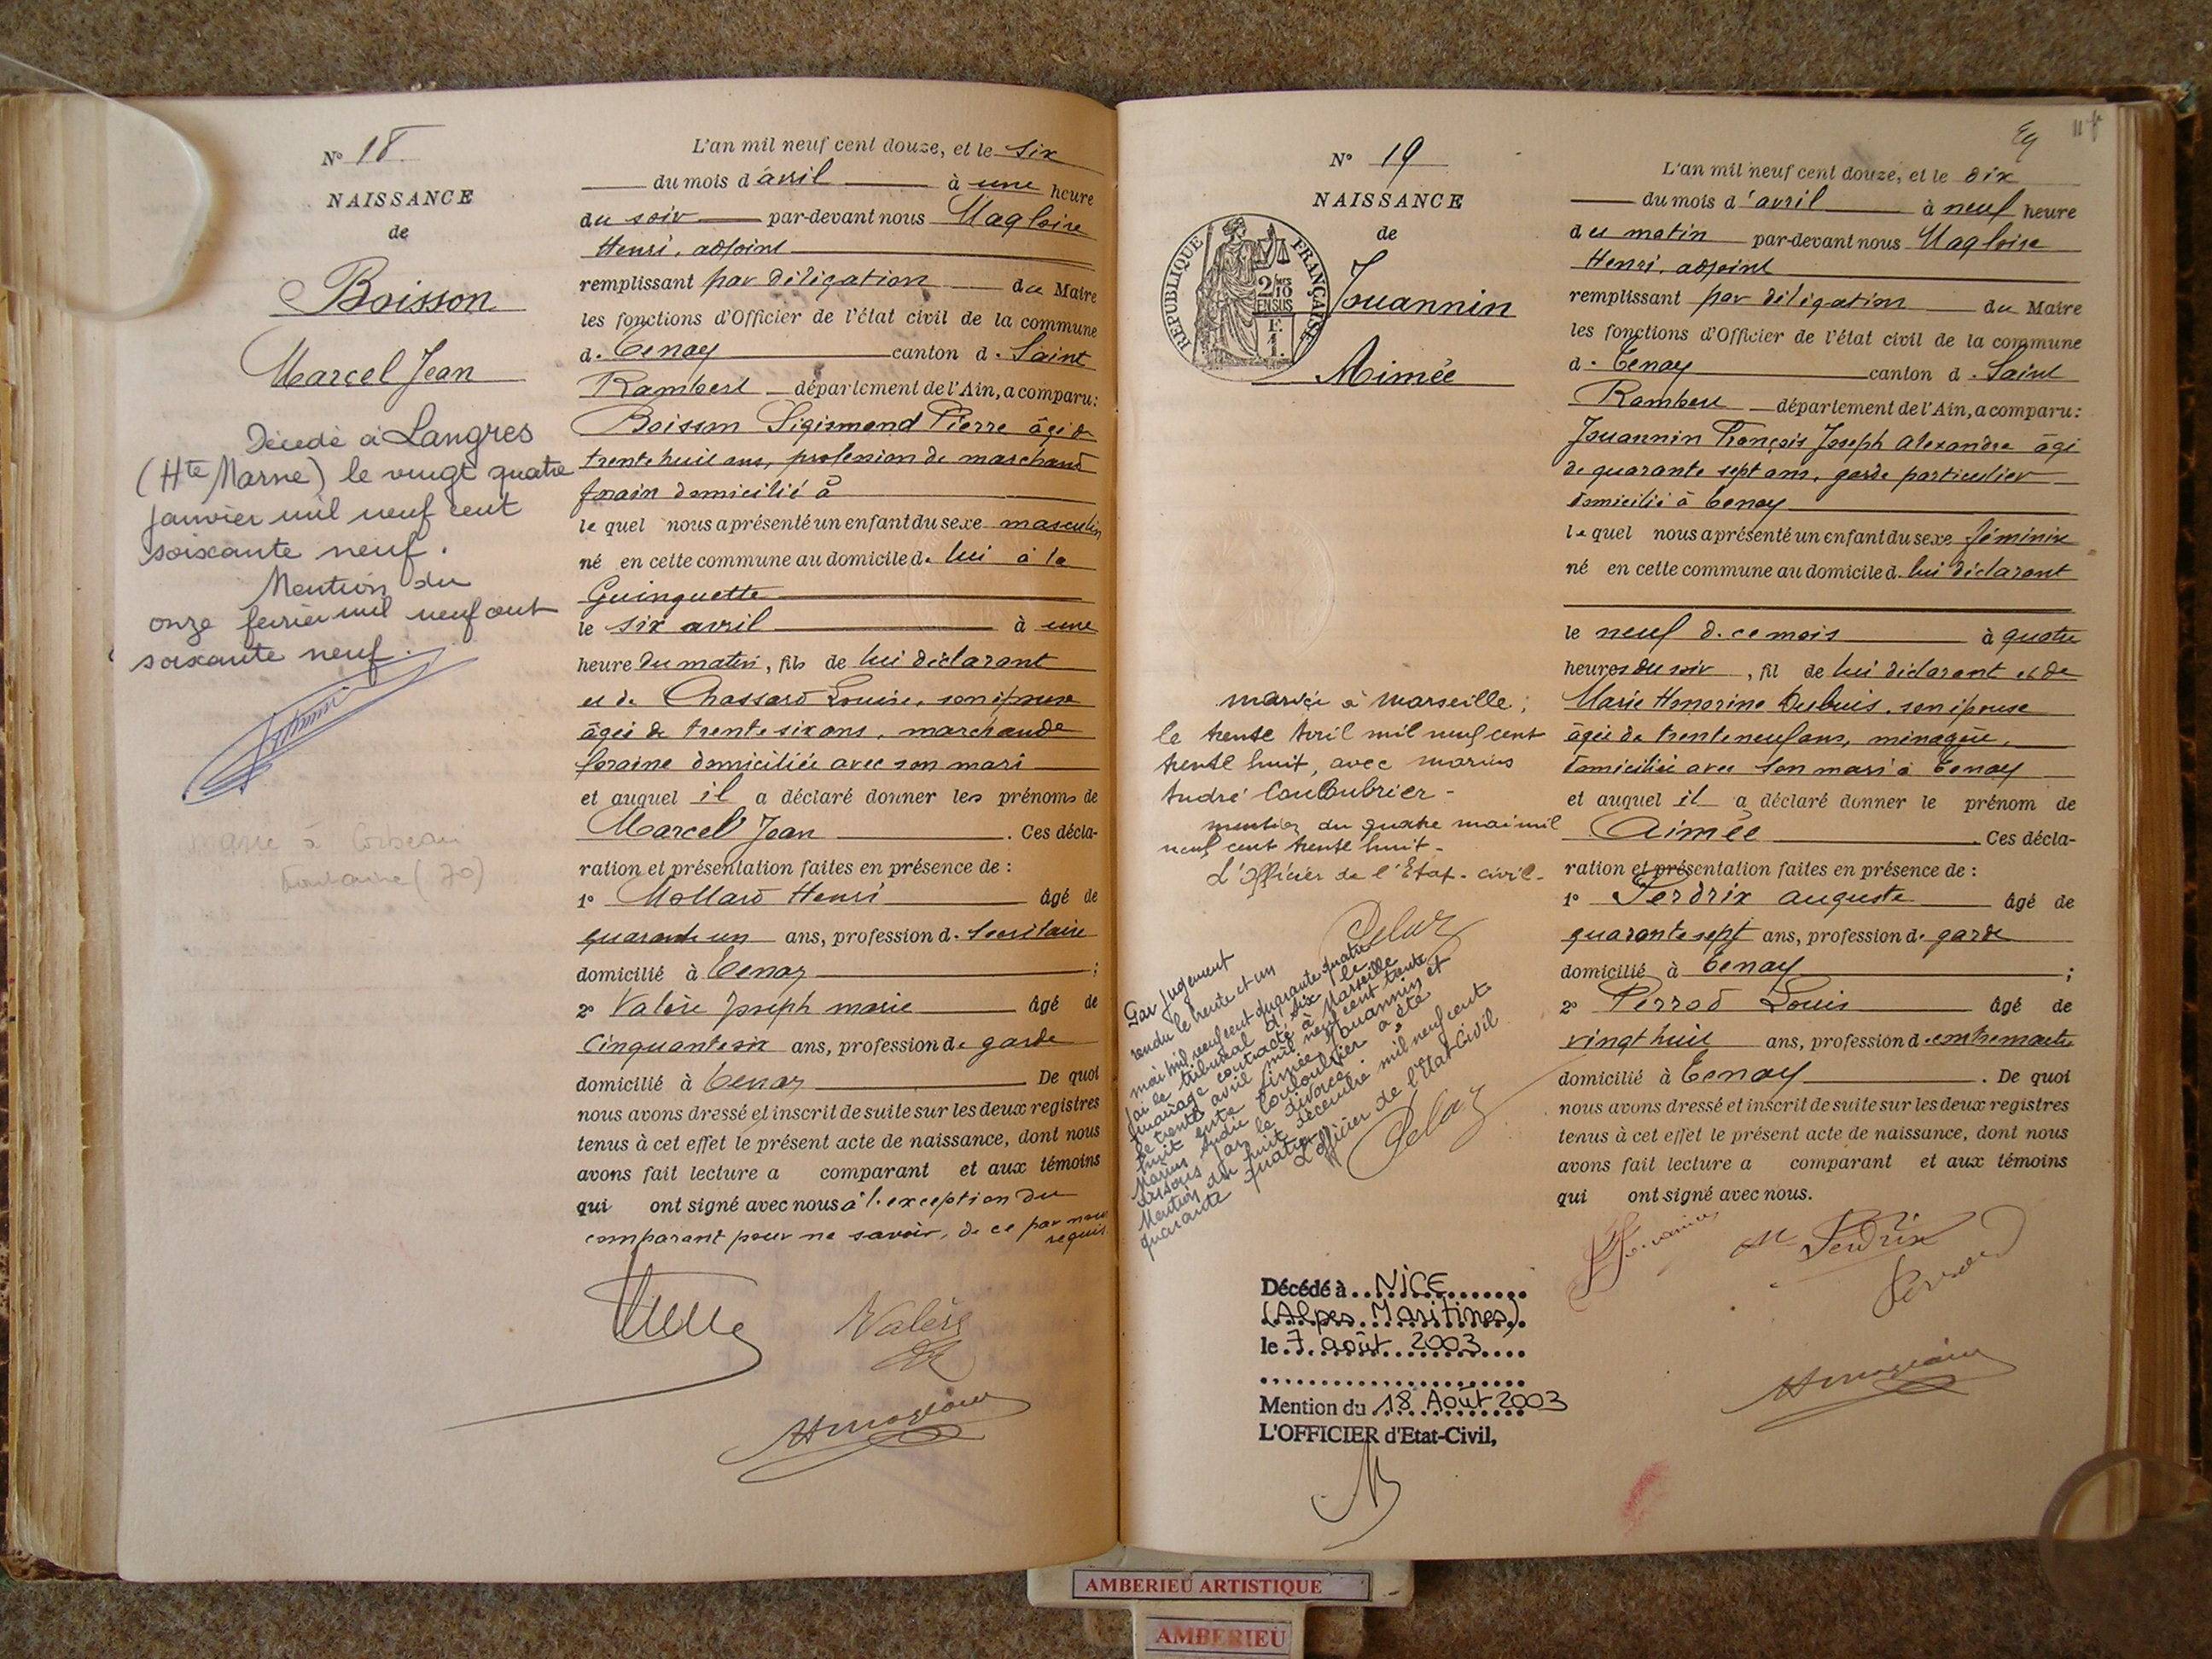 N° 18
NAISSANCE
de
Boisson
Marcel Jean
Décédé à Langres
(Hte Marne) le vingt quatre
janvier mil neuf cent
soixante neuf.
Mention du
onze février mil neuf cent
soixante neuf.
L'an mil neuf cent douze, et le six
du mois d'avril à une heure
du soir par-devant nous Magloire
Henri, adjoint
remplissant par délégation du Maire
les fonctions d'Officier de l'état civil de la commune
de Tenay canton de Saint
Rambert département de l'Ain, a comparu:
Boisson Sigismond Pierre âgé de
trente huit ans, profession de marchand
forain domicilié à
le quel nous a présenté un enfant du sexe masculin
né en cette commune au domicile de lui à la
Guinguette
le six avril à une
heure du matin, fils de lui déclarant
et de Chassard Louise, son épouse
âgée de trente six ans, marchande
foraine domiciliée avec son mari
et auquel il a déclaré donner les prénoms de
Marcel Jean. Ces décla-
ration et présentation faites en présence de:
1° Mollard Henri âgé de
quarante un ans, profession de secrétaire
domicilié à Tenay;
2° Valère Joseph marie âgé de
cinquante six ans, profession de garde
domicilié à Tenay De quoi
nous avons dressé et inscrit de suite sur les deux registres
tenus à cet effet le présent acte de naissance, dont nous
avons fait lecture a comparant et aux témoins
qui ont signé avec nous à l'exception du
comparant pour ne savoir, de ce par nous
requis.
Valère
N° 19
NAISSANCE
de
REPUBLIQUE FRANÇAISE
2/10
EN SUS
F.
1.
Jouannin
Aimée
mariée à Marseille;
le trente Avril mil neuf cent
trente huit, avec Marius
André Couloubrier -
mention du quatre mai mil
neuf cent trente huit -
L'Officier de l'Etat-civil -
Delaz
Par jugement
rendu le trente et un
mai mil neuf cent quarante quatre
par le tribunal d'Aix le
mariage contracté à Marseille
le trente avril mil neuf cent trente
huit entre Aimée Jouannin et
Marius André Couloubrier a été
dissous par le divorce.
Mention du huit décembre mil neuf cent
quarante quatre.
L'officier de l'Etat Civil
Delaz
Décédé à NICE
(Alpes Maritimes)
le 7 août 2003
Mention du 18 Août 2003
L'OFFICIER d'Etat-Civil,
L'an mil neuf cent douze, et le dix
du mois d'avril à neuf heure
du matin par-devant nous Magloire
Henri, adjoint
remplissant par délégation du Maire
les fonctions d'Officier de l'état civil de la commune
de Tenay canton de Saint
Rambert département de l'Ain, a comparu:
Jouannin François Joseph Alexandre âgé
de quarante sept ans, garde particulier
domicilié à Tenay
le quel nous a présenté un enfant du sexe féminin
né en cette commune au domicile de lui déclarant
le neuf de ce mois à quatre
heures du soir, fil de lui déclarant et de
Marie Honorine Dubuis, son épouse
âgée de trente neuf ans, ménagère,
domiciliée avec son mari à Tenay
et auquel il a déclaré donner le prénom de
Aimée. Ces décla-
ration et présentation faites en présence de:
1° Perdrix Auguste âgé de
quarante sept ans, profession de garde
domicilié à Tenay;
2° Perrod Louis âgé de
vingt huit ans, profession de contremaitre
domicilié à Tenay. De quoi
nous avons dressé et inscrit de suite sur les deux registres
tenus à cet effet le présent acte de naissance, dont nous
avons fait lecture a comparant et aux témoins
qui ont signé avec nous.
Perdrix
Perrod
AMBERIEU ARTISTIQUE
AMBERIEU